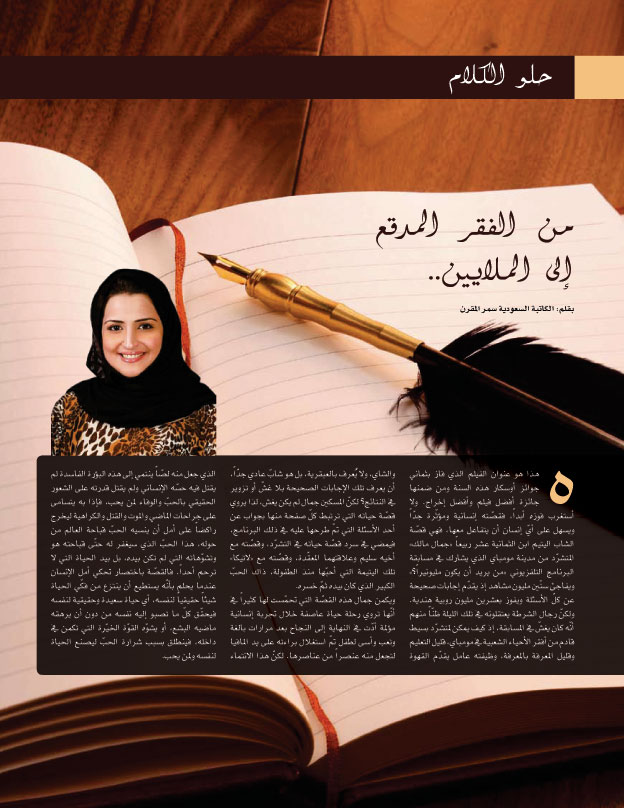 حلو الكلام
من الفقر المدقع
إلى الملايين..
بقلم: الكاتبة السعودية سمر المقرن
هذا هو عنوان الفيلم الذي فاز بثماني
جوائز أوسكار هذه السنة ومن ضمنها
جائزة أفضل فيلم وأفضل إخراج. ولا
أستغرب فوزه أبداً، فقصّته إنسانية ومؤثّرة جداً
ويسهل على أيّ إنسان أن يتفاعل معها. فهي قصّة
الشاب اليتيم ابن الثمانية عشر ربيعاً «جمال مالك»
المتشرّد من مدينة مومباي الذي يشارك في مسابقة
البرنامج التلفزيوني «من يريد أن يكون مليونيراً؟»،
ويفاجئ ستّين مليون مشاهد إذ يقدّم إجابات صحيحة
عن كل الأسئلة ويفوز بعشرين مليون روبية هندية.
ولكنّ رجال الشرطة يعتقلونه في تلك الليلة ظنّاً منهم
أنّه كان يغش في المسابقة، إذ كيف يمكن لمتشرّد بسيط،
قادم من أفقر الأحياء الشعبية في مومباي، قليل التعليم
وقليل المعرفة بالمعرفة، وظيفته عامل يقدّم القهوة
والشاي، ولا يُعرف بالعبقرية، بل هو شابّ عادي جدّاً،
أن يعرف تلك الإجابات الصحيحة بلا غشّ أو تزوير
في النتائج؟ لكنّ المسكين جمال لم يكن يغش، لذا يروي
قصّة حياته التي ترتبط كلّ صفحة منها بجواب عن
أحد الأسئلة التي تمّ طرحها عليه في ذلك البرنامج،
فيمضي في سرد قصّة حياته في التشرّد، وقصّته مع
أخيه سليم وعلاقتهما المعقّدة، وقصّته مع «لاتيكا»
تلك اليتيمة التي أحبّها منذ الطفولة، ذاك الحبّ
الكبير الذي كان بيده ثمّ خسره.
ويكمن جمال هذه القصّة التي تحمّست لها كثيراً في
أنّها تروي رحلة حياة عاصفة خلال تجربة إنسانية
مؤلمة أدّت في النهاية إلى النجاح بعد مرارات بالغة
وتعب وأسى لطفل تمّ استغلال براءته على يد المافيا
لتجعل منه عنصراً من عناصرها. لكنّ هذا الانتماء
الذي جعل منه لصّاً ينتمي إلى هذه البؤرة الفاسدة لم
يقتل فيه حسّه الإنساني ولم يقتل قدرته على الشعور
الحقيقي بالحبّ والوفاء لمن يحب، فإذا به يتسامى
على جراحات الماضي والموت والقتل والكراهية ليخرج
راكضاً على أمل أن ينسيه الحبّ قباحة العالم من
حوله. هذا الحبّ الذي سيغفر له حتّى قباحته هو
وتشوّهاته التي لم تكن بيده، بل بيد الحياة التي لا
ترحم أحداً. فالقصّة باختصار تحكي أمل الإنسان
عندما يحلم بأنّه يستطيع أن ينتزع من فكّي الحياة
شيئاً حقيقياً لنفسه، أي حياة سعيدة وحقيقية لنفسه
فيحقّق كلّ ما تصبو إليه نفسه من دون أن يرهقه
ماضيه البشع، أو يشوّه القوّة الخيّرة التي تكمن في
داخله. فينطلق بسبب شرارة الحبّ ليصنع الحياة
لنفسه ولمن يحب.